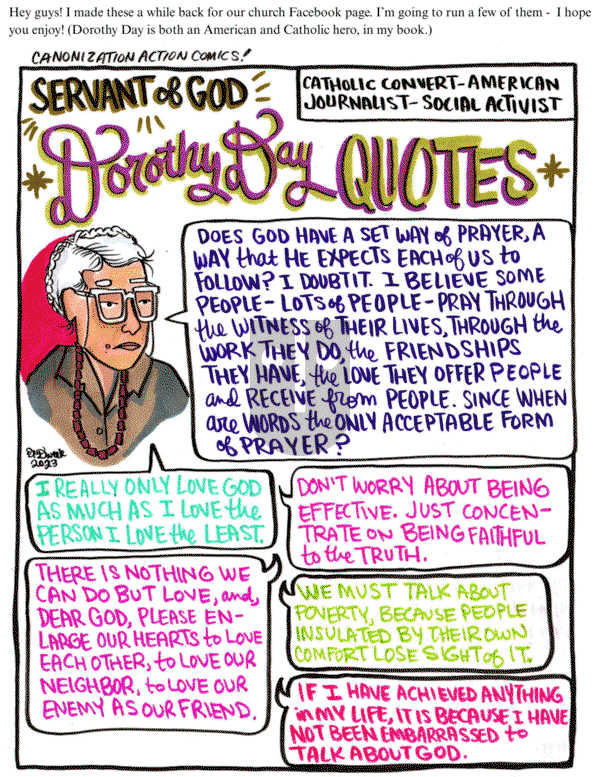 Hey guys! I made these a while back for our church Facebook page. I'm going to run a few of them - I hope
you enjoy! (Dorothy Day is both an American and Catholic hero, in my book.)
CANONIZATION ACTION COMICS!
SERVANT of GOD
CATHOLIC CONVERT-AMERICAN
JOURNALIST-SOCIAL ACTIVIST
Dorothy Day QUOTES
DOES GOD HAVE A SET WAY of PRAYER, A
WAY that HE EXPECTS EACH of US to
FOLLOW? I DOUBT IT. I BELIEVE SOME
PEOPLE - LOTS of PEOPLE - PRAY THROUGH
the WITNESS of THEIR LIVES, THROUGH the
WORK THEY DO, the FRIENDSHIPS
THEY HAVE, the LOVE THEY OFFER PEOPLE
and RECEIVE from PEOPLE. SINCE WHEN
are WORDS the ONLY ACCEPTABLE FORM
of PRAYER?
2023
I REALLY ONLY LOVE GOD
AS MUCH AS I LOVE the
PERSON I LOVE the LEAST.
DON'T WORRY ABOUT BEING
EFFECTIVE. JUST CONCEN-
TRATE ON BEING FAITHFUL
to the TRUTH.
THERE IS NOTHING WE
CAN DO BUT LOVE, and,
DEAR GOD, PLEASE EN-
LARGE OUR HEARTS to LOVE
EACH OTHER, to LOVE OUR
NEIGHBOR, to LOVE OUR
ENEMY AS OUR FRIEND.
WE MUST TALK ABOUT
POVERTY, BECAUSE PEOPLE
INSULATED BY THEIR OWN
COMFORT LOSE SIGHT of IT.
IF I HAVE ACHIEVED ANYTHING
in MY LIFE, IT IS BECAUSE I HAVE
NOT BEEN EMBARRASSED to
TALK ABOUT GOD.